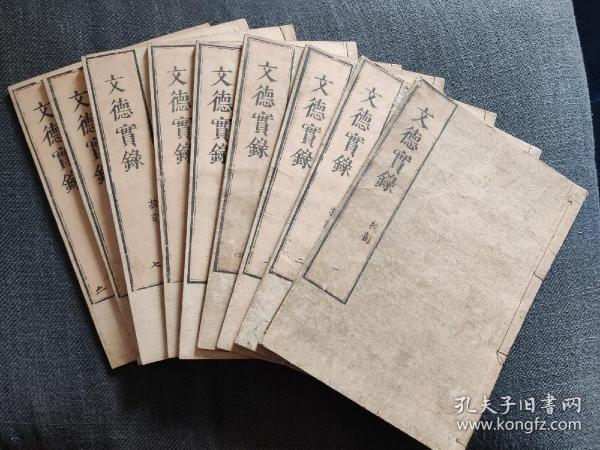 文德實錄
一
文德實錄
文德實錄
二
文德實錄
文德實錄
文德實錄
文德實錄
七
文德實錄
文德實錄
孔夫子旧书网
www.kongfz.com